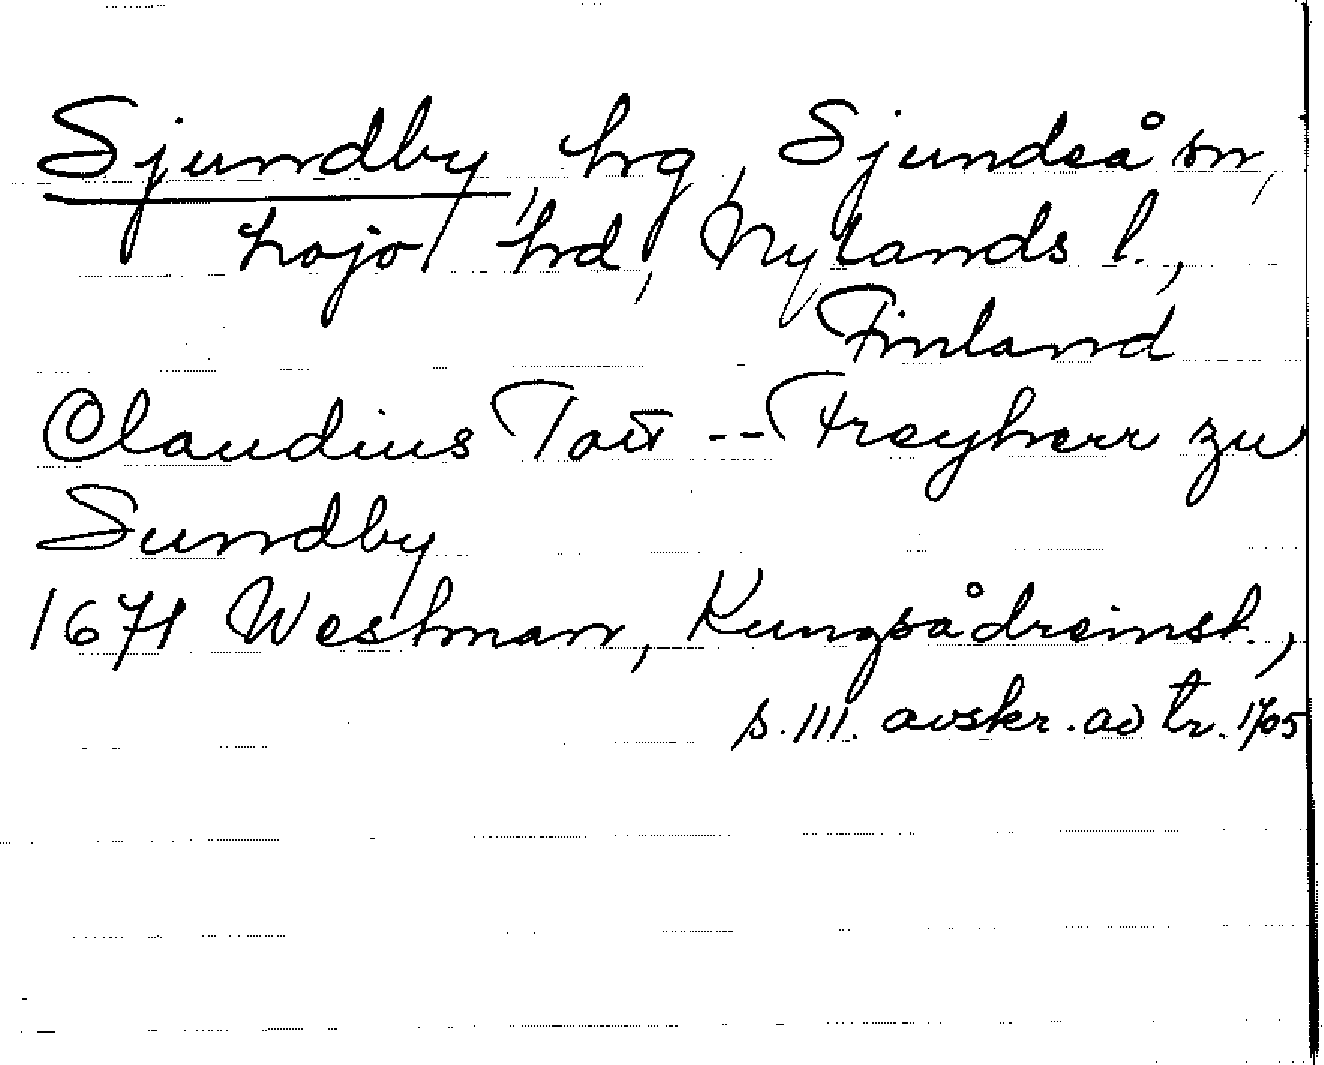 Sjundby, hg, Sjundeå sn,
Lojo hd, Nylands l.,
Finland
Claudius Tott -- Freyherr zu
Sundby
1671 Westman, Kungsådreinst.,
s. 111. avskr. av tr. 1705